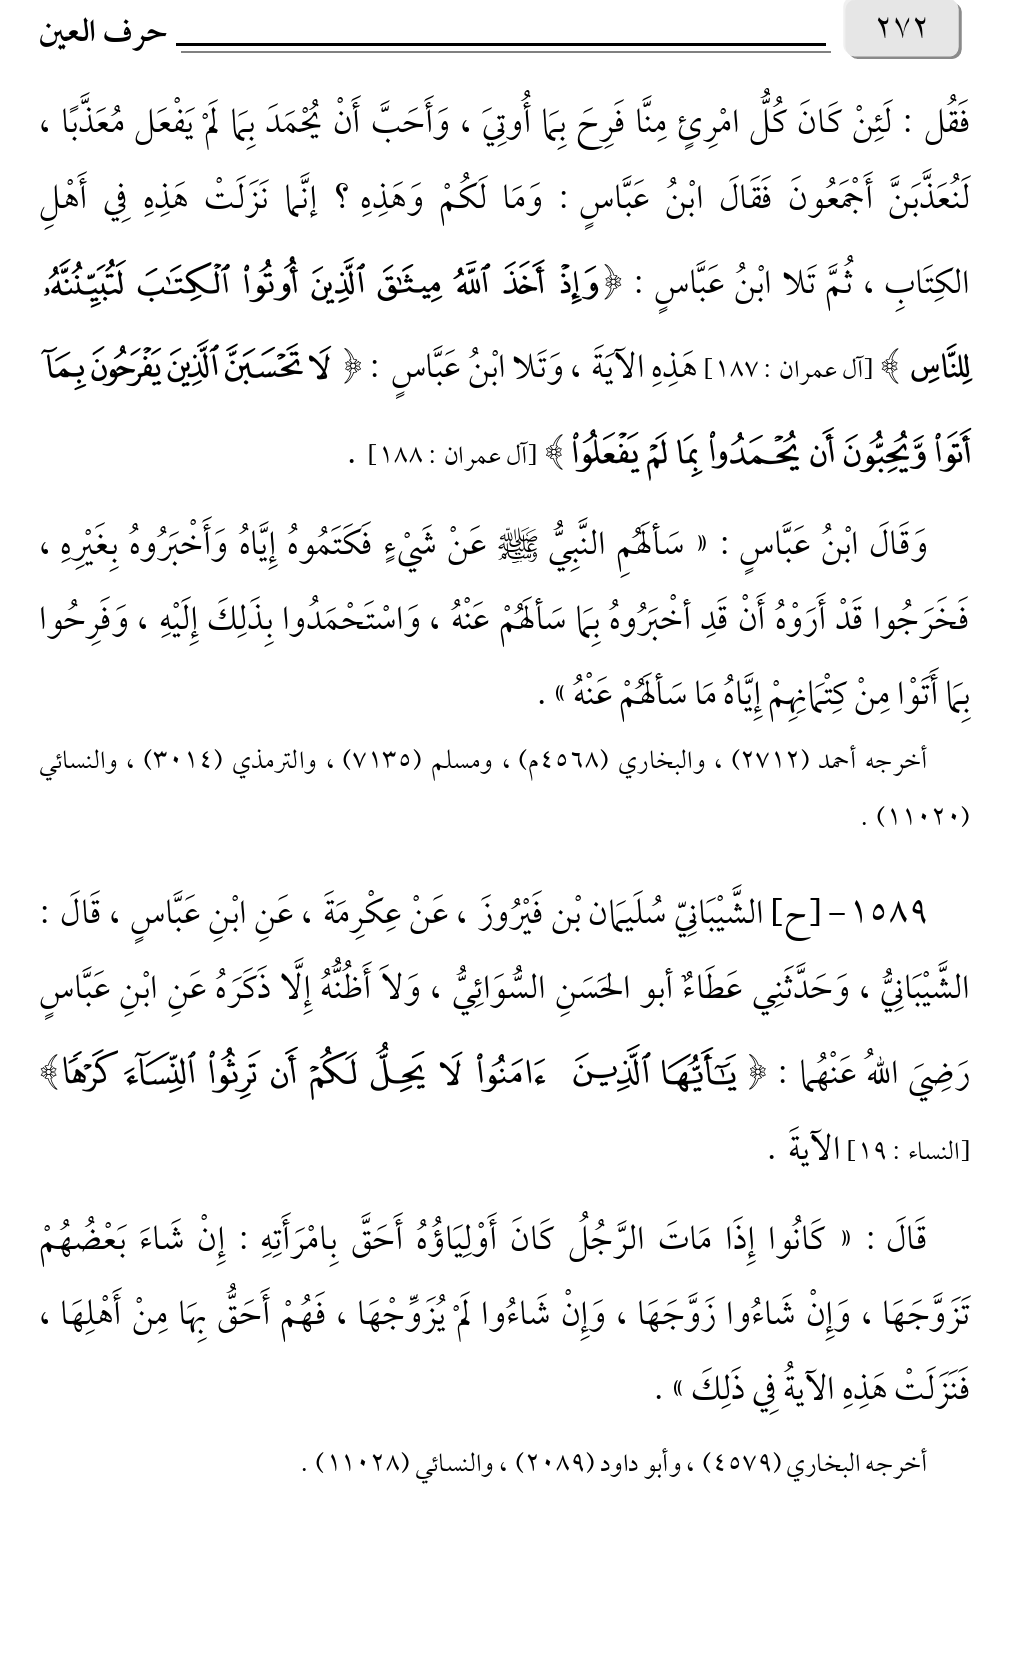 ٢٧٢ حرف العين
فَقُل : لَئِنْ كَانَ كُلُّ امْرِئٍ مِنَّا فَرِحَ بِمَا أُوتِيَ ، وَأَحَبَّ أَنْ يُحْمَدَ بِمَا لَمْ يَفْعَل مُعَذَّبًا ،
لَنُعَذَّبَنَّ أَجْمَعُونَ فَقَالَ ابْنُ عَبَّاسٍ : وَمَا لَكُمْ وَهَذِهِ ؟ إنَّما نَزَلَتْ هَذِهِ فِي أَهْلِ
الكِتَابِ ، ثُمَّ تَلا ابْنُ عَبَّاسٍ : ﴿وَإِذْ أَخَذَ ٱللَّهُ مِيثَٰقَ ٱلَّذِينَ أُوتُوا۟ ٱلْكِتَٰبَ لَتُبَيِّنُنَّهُۥ
لِلنَّاسِ ﴾ [آل عمران : ١٨٧] هَذِهِ الآيَةَ ، وَتَلا ابْنُ عَبَّاسٍ : ﴿ لَا تَحْسَبَنَّ ٱلَّذِينَ يَفْرَحُونَ بِمَآ
أَتَوا۟ وَّيُحِبُّونَ أَن يُحْمَدُوا۟ بِمَا لَمْ يَفْعَلُوا۟ ﴾ [آل عمران : ١٨٨] .
وَقَالَ ابْنُ عَبَّاسٍ : « سَألَهُمِ النَّبِيُّ ﷺ عَنْ شَيْءٍ فَكَتَمُوهُ إِيَّاهُ وَأَخْبَرُوهُ بِغَيْرِهِ ،
فَخَرَجُوا قَدْ أَرَوْهُ أَنْ قَدِ أخْبَرُوهُ بِمَا سَألَهُمْ عَنْهُ ، وَاسْتَحْمَدُوا بِذَلِكَ إِلَيْهِ ، وَفَرِحُوا
بِمَا أَتَوْا مِنْ كِتْمَانِهِمْ إِيَّاهُ مَا سَألَهُمْ عَنْهُ » .
أخرجه أحمد (٢٧١٢) ، والبخاري (٤٥٦٨م) ، ومسلم (٧١٣٥) ، والترمذي (٣٠١٤) ، والنسائي
(١١٠٢٠) .
١٥٨٩ – [ح] الشَّيْبَانِيّ سُلَيمَان بْن فَيْرُوزَ ، عَنْ عِكْرِمَةَ ، عَنِ ابْنِ عَبَّاسٍ ، قَالَ :
الشَّيْبَانِيُّ ، وَحَدَّثَنِي عَطَاءٌ أبو الحَسَنِ السُّوَائِيُّ ، وَلاَ أَظُنُّهُ إِلَّا ذَكَرَهُ عَنِ ابْنِ عَبَّاسٍ
رَضِيَ اللهُ عَنْهُما : ﴿ يَٰٓأَيُّهَا ٱلَّذِينَ ءَامَنُوا۟ لَا يَحِلُّ لَكُمْ أَن تَرِثُوا۟ ٱلنِّسَآءَ كَرْهًا﴾
[النساء : ١٩] الآيةَ .
قَالَ : « كَانُوا إِذَا مَاتَ الرَّجُلُ كَانَ أَوْلِيَاؤُهُ أَحَقَّ بِامْرَأَتِهِ : إِنْ شَاءَ بَعْضُهُمْ
تَزَوَّجَهَا ، وَإِنْ شَاءُوا زَوَّجَهَا ، وَإِنْ شَاءُوا لَمْ يُزَوِّجْهَا ، فَهُمْ أَحَقُّ بِهَا مِنْ أَهْلِهَا ،
فَنَزَلَتْ هَذِهِ الآيةُ فِي ذَلِكَ » .
أخرجه البخاري (٤٥٧٩) ، وأبو داود (٢٠٨٩) ، والنسائي (١١٠٢٨) .